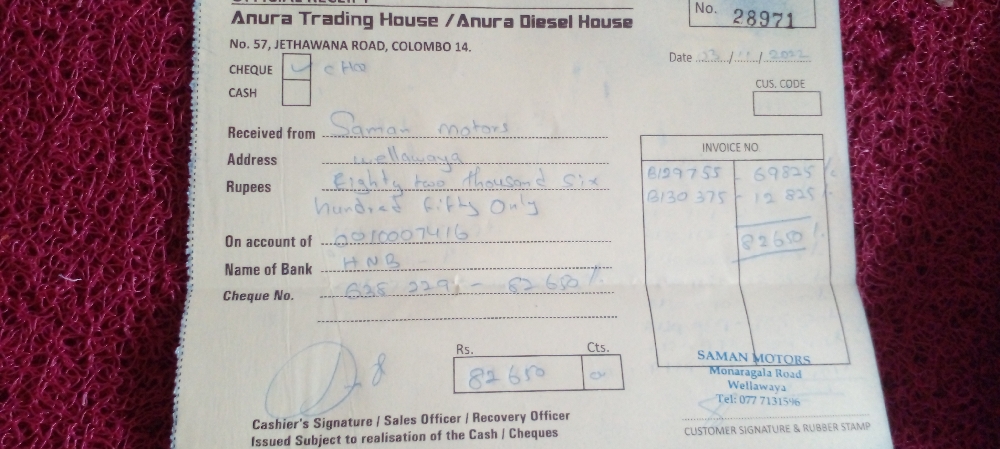 Anura Trading House / Anura Diesel House
No. 28971
No. 57, JETHAWANA ROAD, COLOMBO 14.
Date 23/11/2022
CHEQUE
CASH
CUS. CODE
Received from Saman motors
Address wellawaya
Rupees Eighty two thousand six
hundred fifty Only
INVOICE NO.
B129755 - 69825/-
B130 375 - 12 825/-
82650/-
On account of 6010007416
Name of Bank HNB
Cheque No. 229 - 82 650/-
Rs. Cts.
82 650
SAMAN MOTORS
Monaragala Road
Wellawaya
Tel: 077 7131596
Cashier's Signature / Sales Officer / Recovery Officer
Issued Subject to realisation of the Cash / Cheques
CUSTOMER SIGNATURE & RUBBER STAMP